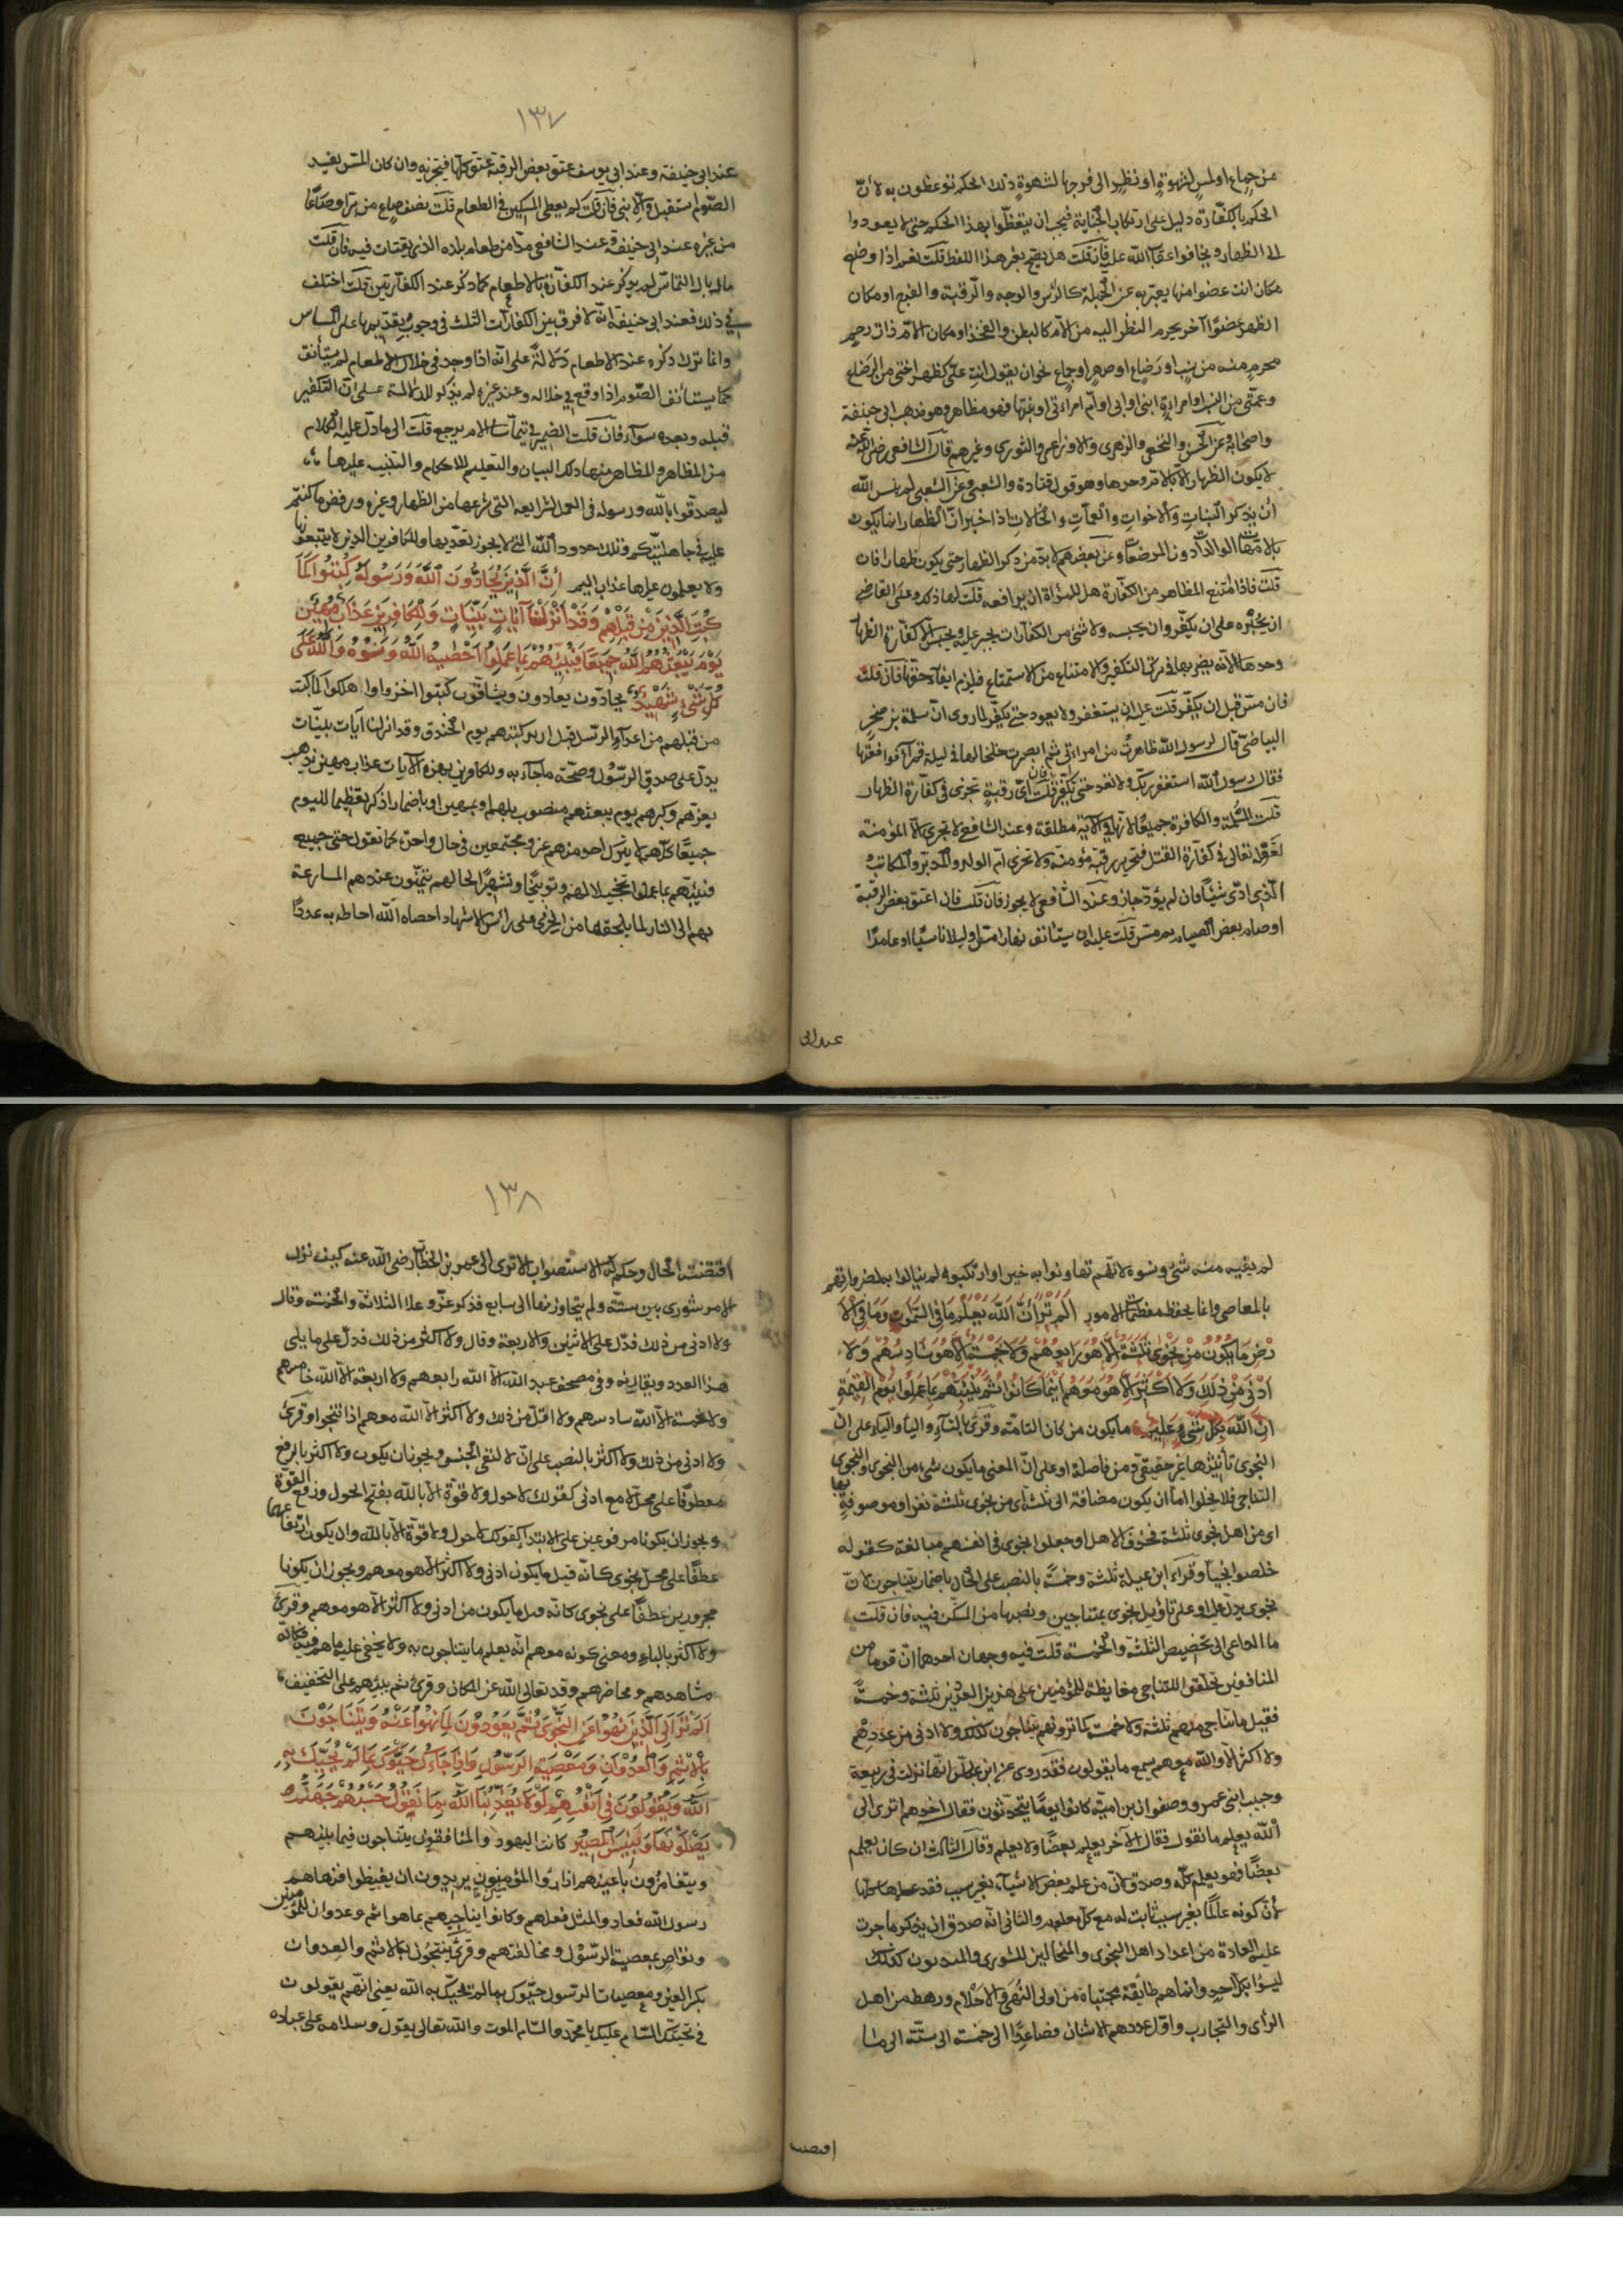 من جماع او لمس لشهوة او نظر الى فرجها لشهوة ذلك الحكم توعظون به لان
الحكم بالكفارة دليل على ارتكاب الجناية فيجب ان يتعظوا بهذا الحكم حتى لا يعودوا
الى الظهار ويخافوا عقاب الله عليه فان قلت هل يصح بغير هذا اللفظ قلت نعم اذا وضع
مكان انت عضوا منها يعبر به عن الجملة كالرأس والوجه والرقبة والفرج او مكان
الظهر عضوا آخر يحرم النظر اليه من الام كالبطن والفخذ او مكان الام ذات رحم
محرم منه من نسب او رضاع او صهر او جماع نحو ان يقول انت على كظهر اختى من الرضاع
وعمتى من النسب او امراءة ابنى او ابى او ام امراءتى او بنتها فهو مظاهر وهو مذهب ابى حنيفة
واصحابه وعن الحسن والنخعى والزهرى والاوزاعى والثورى وغيرهم نحوه قال الشافعى رضى الله عنه
لا يكون الظهار الا بالام وحدها وهو قول قتادة والشعبى وعن الشعبى لم ينس الله
أن يذكر البنات والاخوات والعمات والخالات اذا خبر ان الظهار انما يكون
بالامهات الوالدات دون المرضعات وعن بعضهم لا بد من ذكر الظهر حتى يكون ظهارا فان
قلت فاذا امتنع المظاهر من الكفارة هل للمرأة ان يرافعه قلت لها ذلك وعلى القاضى
ان يجبره على ان يكفر وان يحبسه ولا شئ من الكفارات يجبر عليه ويحبس الا كفارة الظهار
وحدها لانه يضر بها فى ترك التكفير والامتناع من الاستمتاع فيلزم ايفاء حقها فان قلت
فان مس قبل ان يكفر قلت عليه ان يستغفر ولا يعود حتى يكفر لما روى ان سلمة بن صخر
البياضى قال لرسول الله ظاهرت من امراءتى ثم ابصرت خلخالها فى ليلة قمراء فواقعتها
فقال رسول الله استغفر ربك ولا تعد حتى تكفر فان قلت اى رقبة تجزى فى كفارة الظهار
قلت المسلمة والكافرة جميعا لانها فى الآية مطلقة وعند الشافعى لا تجزى الا المؤمنة
لقوله تعالى فى كفارة القتل فتحرير رقبة مؤمنة ولا تجزى ام الولد والمدبر والمكاتب
الذى ادى شيئا فان لم يؤد جاز وعند الشافعى لا يجوز فان قلت فان اعتق بعض الرقبة
او صام بعض الصيام ثم مس قلت عليه ان يستأنف نهارا مس او ليلا ناسيا او عامدا
عند ابى
١٣٧
عند ابى حنيفة وعند ابى يوسف عتق بعض الرقبة عتق كلها فيجزيه وان كان المس يفسد
الصوم استقبل والا بنى فان قلت كم يعطى المسكين فى الطعام قلت نصف صاع من بر او صاعا
من غيره عند ابى حنيفة وعند الشافعى مدا من طعام بلده الذى يقتات فيه فان قلت
ما بال التماس لم يذكر عند الكفارة بالاطعام كما ذكر عند الكفارتين قلت اختلف
فى ذلك فعند ابى حنيفة انه لا فرق بين الكفارات الثلث فى وجوب تقديمها على المساس
وانما ترك ذكره عند الاطعام دلالة على انه اذا وجد فى خلال الاطعام لم يستأنف
كما يستأنف الصوم اذا وقع فى خلاله وعند غيره لم يذكر للدلالة على ان التكفير
قبله وبعده سواء فان قلت الضمير فى يتماسا الام يرجع قلت الى ما دل عليه الكلام
من المظاهر والمظاهر منها ذلك البيان والتعليم للاحكام والتنبيه عليها
ليصدقوا بالله ورسوله فى العمل بشرايعه التى شرعها من الظهار وغيره ورفض ما كنتم
عليه فى جاهليتكم وتلك حدود الله التى لا يجوز تعديها وللكافرين الذين لا يتبعونها
ولا يعملون عليها عذاب اليم إن الذين يحادون الله ورسوله كبتوا كما
كبت الذين من قبلهم وقد أنزلنا آيات بينات وللكافرين عذاب مهين
يوم يبعثهم الله جميعا فينبئهم بما عملوا احصيه الله ونسوه والله على
كل شئ شهيد يحادون يعادون ويشاقون كبتوا اخزوا واهلكوا كما كبت
من قبلهم من اعداء الرسل قيل اريد كبتهم يوم الخندق وقد انزلنا آيات بينات
يدل على صدق الرسول وصحة ما جاء به وللكافرين بهذه الآيات عذاب مهين يذهب
بعزهم وكبرهم يوم يبعثهم منصوب بلهم او بمهين او باضمار اذكر تعظيما لليوم
جميعا كلهم لا يترك احد منهم غير مجتمعين فى حال واحدة كما تقول حى جميع
فينبئهم بما عملوا تخجيلا لهم وتوبيخا وتشهيرا لحالهم يتمنون عندهم المسارعة
بهم الى النار لما يلحقهم من الخزى على رأس الاشهاد احصاه الله احاط به عددا
لم يفته منه شئ ونسوه لانهم تهاونوا به حين اوا ارتكبوه لم يبالوا به لضراوتهم
بالمعاصى وانما يحفظ معظمات الامور الم تر أن الله يعلم ما فى السموات وما فى الا
رض ما يكون من نجوى ثلثة الا هو رابعهم ولا خمسة الا هو سادسهم ولا
ادنى من ذلك ولا اكثر الا هو معهم اينما كانوا ثم ينبئهم بما عملوا يوم القيمة
ان الله بكل شئ عليم ما يكون من كان التامة وقرئ بالتاء والياء والياء على ان
النجوى تأنيثها غير حقيقى ومن فاصلة او على ان المعنى ما يكون شئ من النجوى والنجوى
التناجى فلا يخلوا اما ان يكون مضافة الى ثلثة اى من نجوى ثلثة نفر او موصوفة بها
اى من اهل نجوى ثلثة فحذف الاهل او جعلوا نجوى فى انفسهم مبالغة كقوله
خلصوا نجيا وقراء ابن عبلة ثلثة وخمسة بالنصب على الحال باضمار يتناجون لان
نجوى يدل عليه او على تاويل نجوى بمتناجين ونصبها من المستكن فيه فان قلت
ما الداعى الى تخصيص الثلثة والخمسة قلت فيه وجهان احدهما ان قوما من
المنافقين تحلقوا للتناجى مغايظة للمؤمنين على هذين العددين ثلثة وخمسة
فقيل ما يتناجى منهم ثلثة ولا خمسة كما ترونهم يتناجون كذلك ولا ادنى من عددهم
ولا اكثر الا والله معهم يسمع ما يقولون فقد روى عن ابن عباس انها نزلت فى ربيعة
وحبيب ابنى عمرو وصفوان بن امية كانوا يوما يتحدثون فقال احدهم اترى الى
الله يعلم ما نقول فقال الآخر يعلم بعضا ولا يعلم وقال الثالث ان كان يعلم
بعضا فهو يعلم كله وصدق لان من علم بعض الاشياء بغير سبب فقد علمها كلها
لأن كونه عالما بغير سبب ثابت له مع كل معلوم والثانى انه صدق ان يذكر ما جرت
عليه العادة من اعداد اهل النجوى والمتخالين للشورى والمندبون لذلك
ليسوا بكل احد وانما هم طائفة مجتباة من اولى النهى والاحلام ورهط من اهل
الرأى والتجارب واول عددهم الاثنان فصاعدا الى خمسة الى ستة الى ما
اقتضت
١٣٨
اقتضته الحال وحكم به الاستصواب الا ترى الى عمر بن الخطاب رضى الله عنه كيف ترك
الامر شورى بين ستة ولم يتجاوز بها الى سابع فذكر عز وعلا الثلاثة والخمسة وقال
ولا ادنى من ذلك فدل على الاثنين والاربعة وقال ولا اكثر من ذلك فدل على ما يلى
هذا العدد ويقاربه وفى مصحف عبد الله الا الله رابعهم ولا اربعة الا الله خامسهم
ولا خمسة الا الله سادسهم ولا اقل من ذلك ولا اكثر الا الله معهم اذا انتجوا وقرئ
ولا ادنى من ذلك ولا اكثر بالنصب على ان لا لنفى الجنس ويجوز ان يكون ولا اكثر بالرفع
معطوفا على محل لا مع ادنى كقولك لا حول ولا قوة الا بالله بفتح الحول ورفع القوة
ويجوز ان يكونا مرفوعين على الابتداء كقولك لا حول ولا قوة الا بالله وان يكون ارتفاعهما
عطفا على محل نجوى كانه قيل ما يكون ادنى ولا اكثر الا هو معهم ويجوز ان يكونا
مجرورين عطفا على نجوى كانه قيل ما يكون من ادنى ولا اكثر الا هو معهم وقرئ
ولا اكثر بالباء ومعنى كونه معهم انه يعلم ما يتناجون به ولا يخفى عليه ما هم فيه فكانه
مشاهدهم ومحاضرهم وقد تعالى الله عن المكان وقرئ ثم ينبئهم على التخفيف
الم تر الى الذين نهوا عن النجوى ثم يعودون لما نهوا عنه ويتناجون
بالاثم والعدوان ومعصية الرسول واذا جاءك حيوك بما لم يحيك به
الله ويقولون فى انفسهم لولا يعذبنا الله بما نقول حسبهم جهنم
يصلونها وبئس المصير كانت اليهود والمنافقون يتناجون فيما بينهم
ويتغامزون باعينهم اذا رأوا المؤمنين يريدون ان يغيظوا فنهاهم
رسول الله فعادوا لمثل فعلهم وكانوا يتناجيهم بما هو اثم وعدوان للمؤمنين
وتواص بمعصية الرسول ومخالفتهم وقرئ ينتجون بالاثم والعدوان
بكسر العين ومعصيات الرسول حيوك بما لم يحيك به الله يعنى انهم يقولون
فى تحيتك السام عليك يا محمد والسام الموت والله تعالى يقول وسلام على عباده